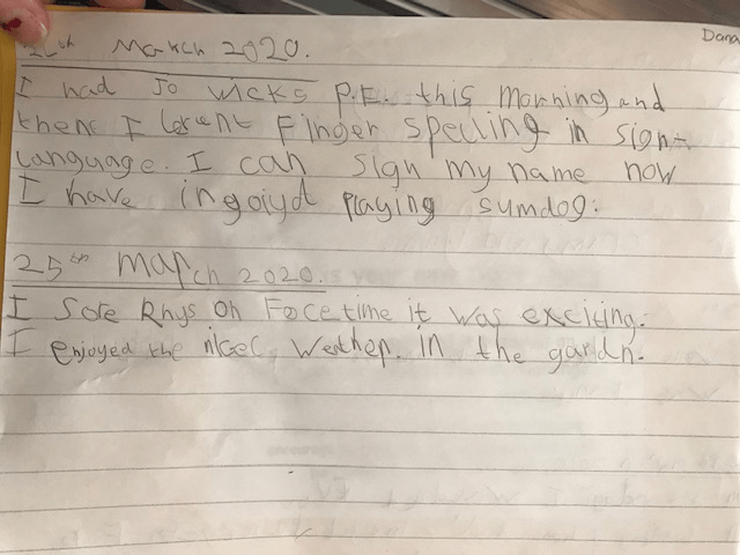 Dana
March 2020.
I had Jo wicks P.E. this morning and
then I lernt finger spelling in sign
language. I can sign my name now
I have ingoiyd playing sumdog.
25th march 2020.
I sore Rhys on Facetime it was exciting.
I enjoyed the weather. in the gardn.